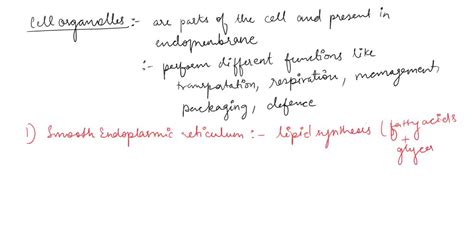 Cell organelles :- are parts of the cell and present in
endomembrane
:- perform different functions like
transpotation, respiration, management,
packaging, defence
1) Smooth Endoplasmic reticulum :- lipid synthesis (fatty acids
+
glycer